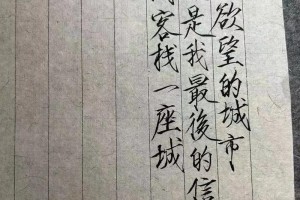 欲望的城市
是我最後的信
客栈一座城